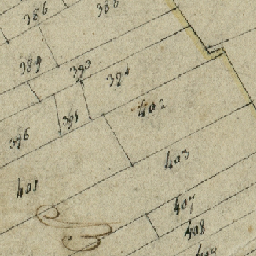 386
388
389
390
394
402
396
395
403
401
407
408